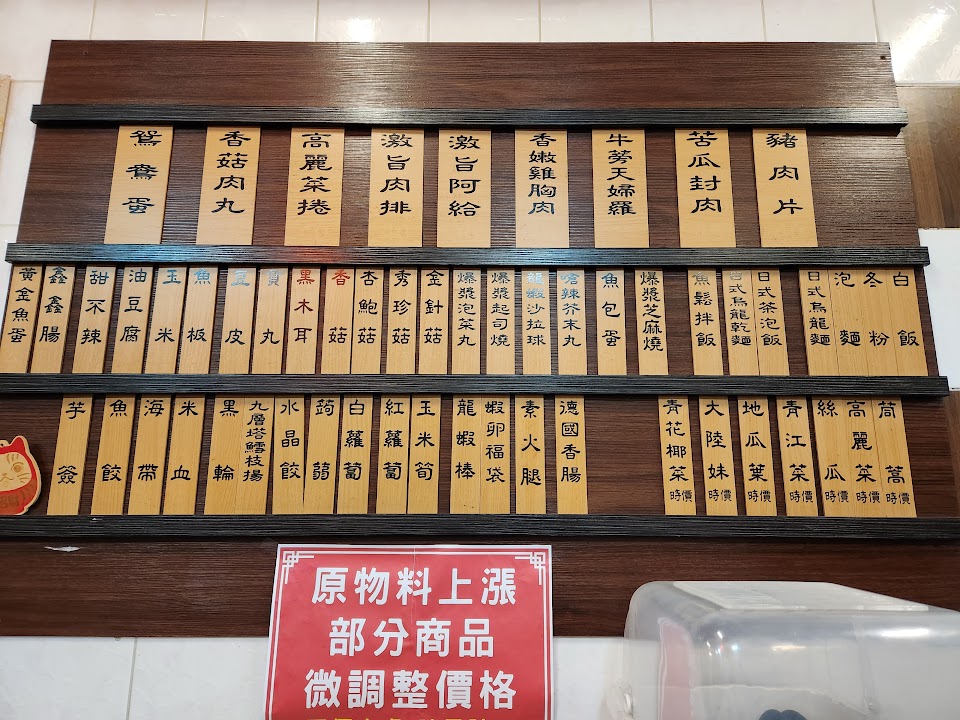 豬肉片
苦瓜封肉
牛蒡天婦羅
香嫩雞胸肉
激旨阿給
激旨肉排
高麗菜捲
香菇肉丸
鴛鴦蛋
白飯
冬粉
泡麵
日式烏龍麵
日式茶泡飯
日式烏龍乾麵
魚鬆拌飯
爆漿芝麻燒
魚包蛋
嗆辣芥末丸
龍蝦沙拉球
爆漿起司燒
爆漿泡菜丸
金針菇
秀珍菇
杏鮑菇
香菇
黑木耳
貢丸
豆皮
魚板
玉米
油豆腐
甜不辣
鑫鑫腸
黃金魚蛋
茼蒿時價
高麗菜時價
絲瓜時價
青江菜時價
地瓜葉時價
大陸妹時價
青花椰菜時價
德國香腸
素火腿
蝦卵福袋
龍蝦棒
玉米筍
紅蘿蔔
白蘿蔔
蒟蒻
水晶餃
九層塔鱈枝揚
黑輪
米血
海帶
魚餃
芋簽
原物料上漲
部分商品
微調整價格